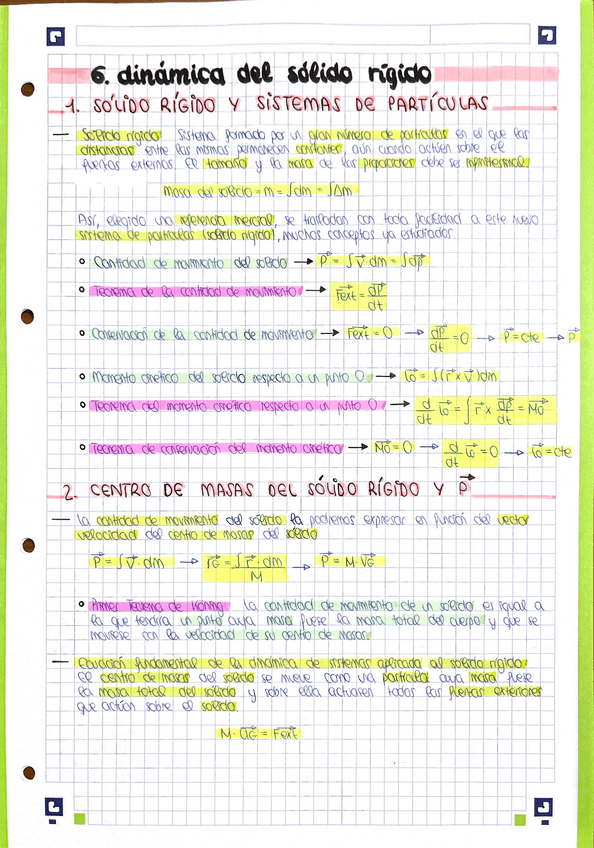 6. dinámica del sólido rígido
1. SÓLIDO RÍGIDO Y SISTEMAS DE PARTÍCULAS
— Sólido rígido: Sistema formado por un gran número de partículas en el que las
distancias entre las mismas permanecen constantes, aún cuando actúen sobre el
fuerzas externas. El tamaño y la masa de las porciones debe ser infinitesimal.
Masa del sólido = m = ∫dm = ∫Δm
Así, elegido una referencia inercial, se trasladan con toda facilidad a este nuevo
sistema de partículas (sólido rígido), muchos conceptos ya estudiados.
Cantidad de movimiento del sólido → P⃗ = ∫v⃗ dm = ∫dp⃗
Teorema de la cantidad de movimiento → F⃗ext = dP⃗/dt
Conservación de la cantidad de movimiento → F⃗ext = 0 → dP⃗/dt = 0 → P⃗ = cte → P⃗
Momento cinético del sólido respecto a un punto O → L⃗o = ∫(r⃗ x v⃗)dm
Teorema del momento cinético respecto a un punto O → d/dt L⃗o = ∫ r⃗ x dp⃗/dt = M⃗o
Teorema de conservación del momento cinético → M⃗o = 0 → d/dt L⃗o = 0 → L⃗o = cte
2. CENTRO DE MASAS DEL SÓLIDO RÍGIDO Y P⃗
— La cantidad de movimiento del sólido la podremos expresar en función del vector
velocidad del centro de masas del sólido
P⃗ = ∫v⃗ · dm → r⃗G = ∫r⃗ · dm/M → P⃗ = M · v⃗G
Primer Teorema de König: La cantidad de movimiento de un sólido es igual a
la que tendría un punto cuya masa fuese la masa total del cuerpo y que se
moviese con la velocidad de su centro de masas.
— Ecuación fundamental de la dinámica de sistemas aplicada al sólido rígido:
El centro de masas del sólido se mueve como una partícula cuya masa fuese
la masa total del sólido y sobre ella actuasen todas las fuerzas exteriores
que actúan sobre el sólido.
M · a⃗G = F⃗ext